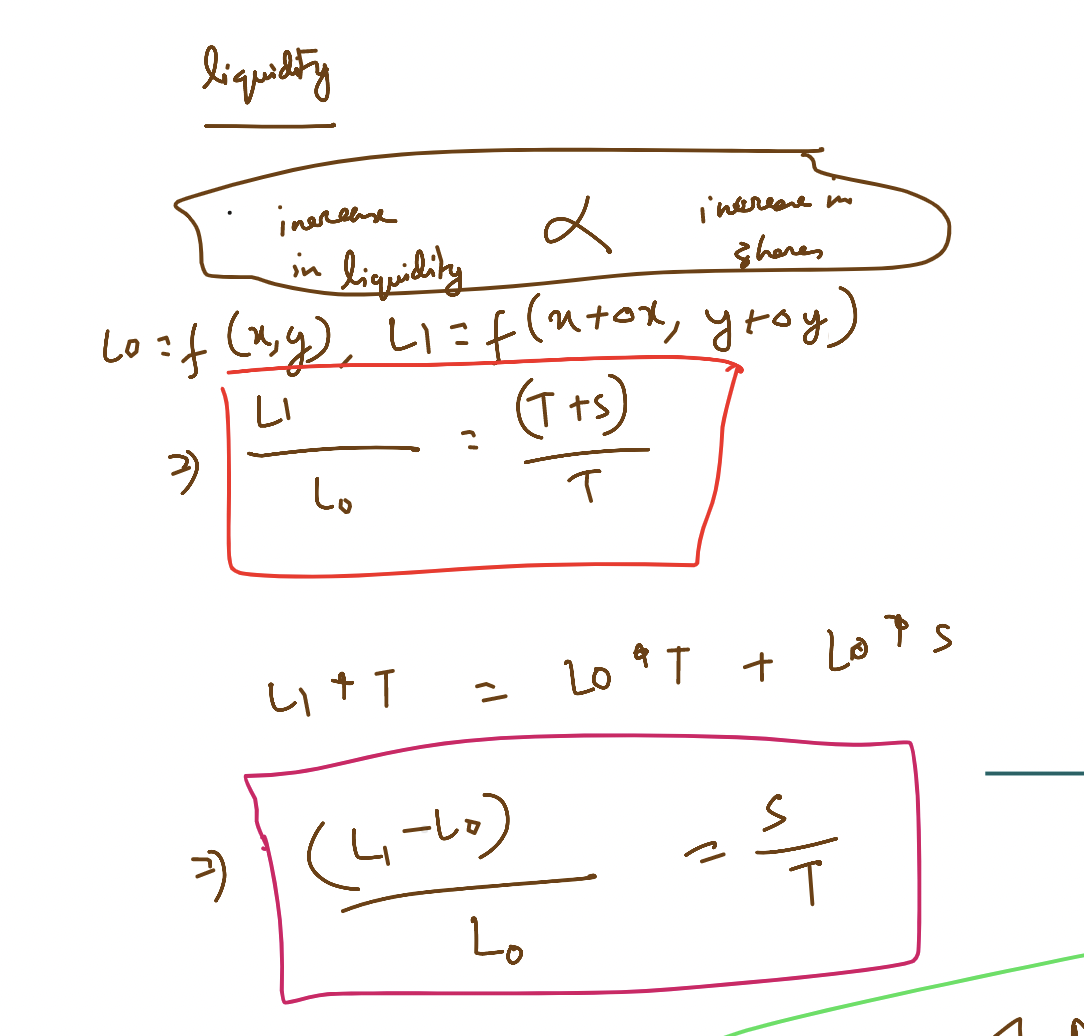 liquidity
increase in liquidity α increase in shares
L0 = f(x,y), L1 = f(x+Δx, y+Δy)
⇒ L1 / L0 = (T+S) / T
L1 * T = L0 * T + L0 * S
⇒ (L1 - L0) / L0 = S / T